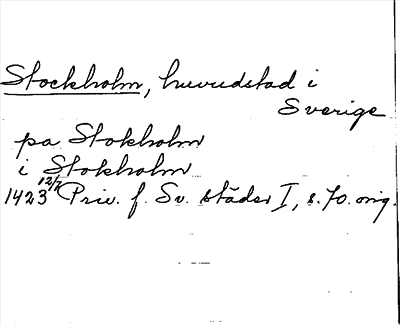 Stockholm, huvudstad i
Sverige
pa Stokholm
i Stokholm
1423 12/7 Priv. f. Sv. städer I, s. 70. orig.